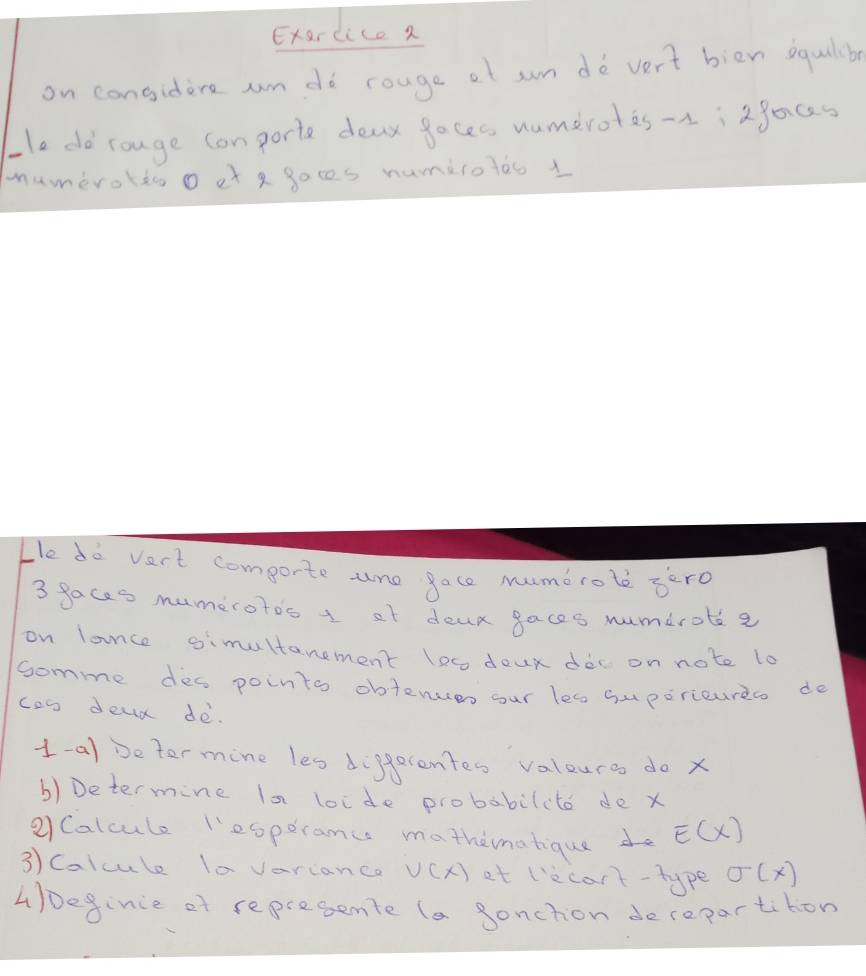 Exercice 2
on considère un dé rouge et un dé vert bien équilibr
- le dé rouge comporte deux faces numérotés -1 ; 2 faces
numérotés 0 et 2 faces numérotés 1
- le dé vert comporte une face numéroté zéro
3 faces numérotés 1 et deux faces numéroté 2
on lance simultanement les deux dés on note la
somme des points obtenues sur les supérieures de
ces deux dé.
1-a) Determine les differentes valeurs de X
b) Determine la loi de probabilité de X
2) Calcule l'espérance mathématique de E(X)
3) Calcule la variance V(X) et l'écart-type σ(X)
4) Definie et represente la fonction de repartition